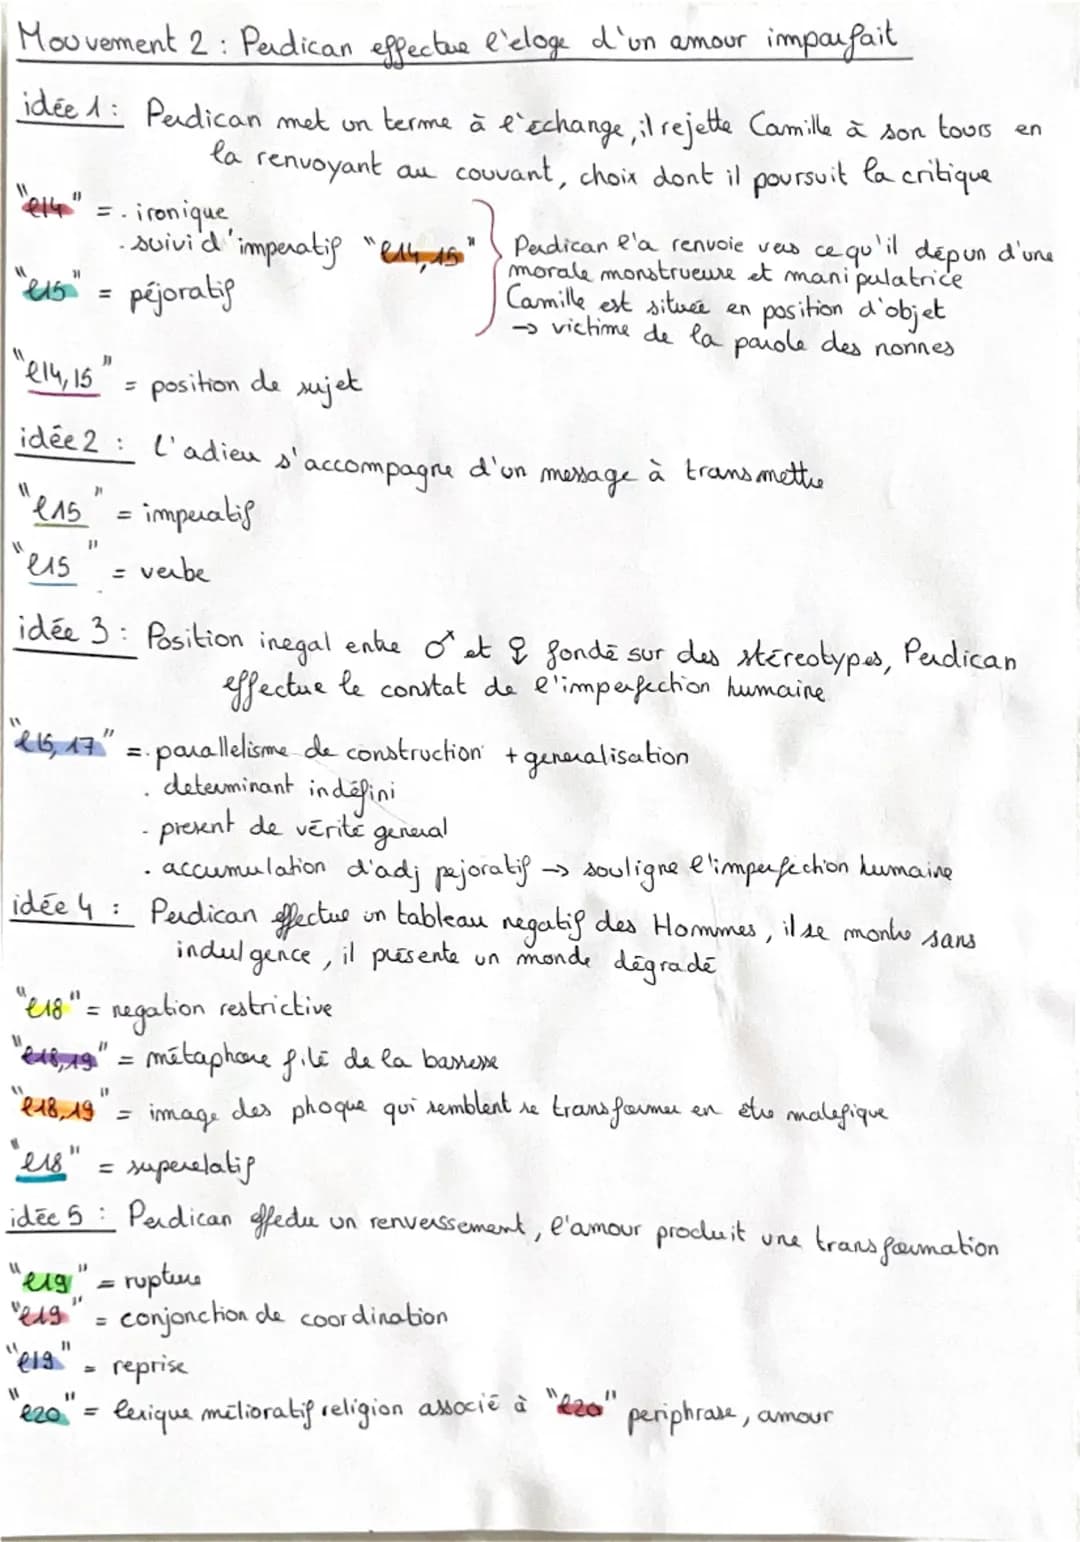 Mouvement 2 : Perdican effectue l'eloge d'un amour imparfait
idée 1 : Perdican met un terme à l'échange, il rejette Camille à son tours en
la renvoyant au couvant, choix dont il poursuit la critique
"l14" = . ironique
. suivi d'imperatif "l14, 15"
"l15" = péjoratif
Perdican l'a renvoie vers ce qu'il dépun d'une
morale monstrueuse et manipulatrice
Camille est située en position d'objet
→ victime de la parole des nonnes
"l14, 15" = position de sujet
idée 2 : l'adieu s'accompagne d'un message à transmettre
"l15" = imperatif
"l15" = verbe
idée 3 : Position inegal entre ♂ et ♀ fondé sur des stéreotypes, Perdican
effectue le constat de l'imperfection humaine
"l16, 17" = . parallelisme de construction + generalisation
. determinant indéfini
. present de vérité general
. accumulation d'adj pejoratif → souligne l'imperfection humaine
idée 4 : Perdican effectue un tableau negatif des Hommes, il se montre sans
indulgence, il présente un monde dégradé
"l18" = negation restrictive
"l18, 19" = métaphore filé de la bassesse
"l18, 19" = image des phoque qui semblent se transformer en être malefique
"l18" = superelatif
idée 5 : Perdican effedue un renverssement, l'amour produit une transformation
"l19" = rupture
"l19" = conjonction de coordination
"l19" = reprise
"l20" = lexique mélioratif religion associé à "l20" periphrase, amour